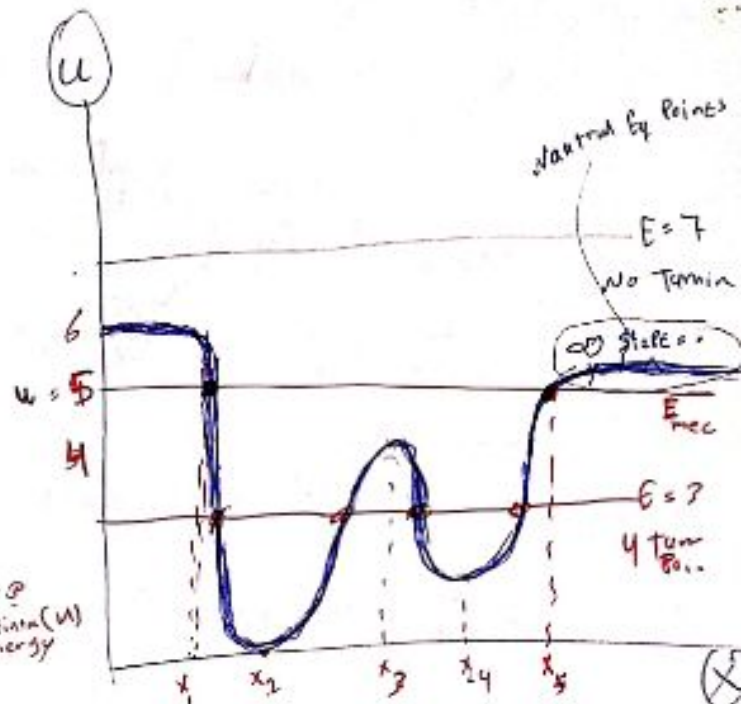 U
Neutral Eq Points
E = 7
No Turnin
6
Slope = 0
u = 5
E mec
4
E = 3
4 turn
(U)
x1
x2
x3
x4
x5
X